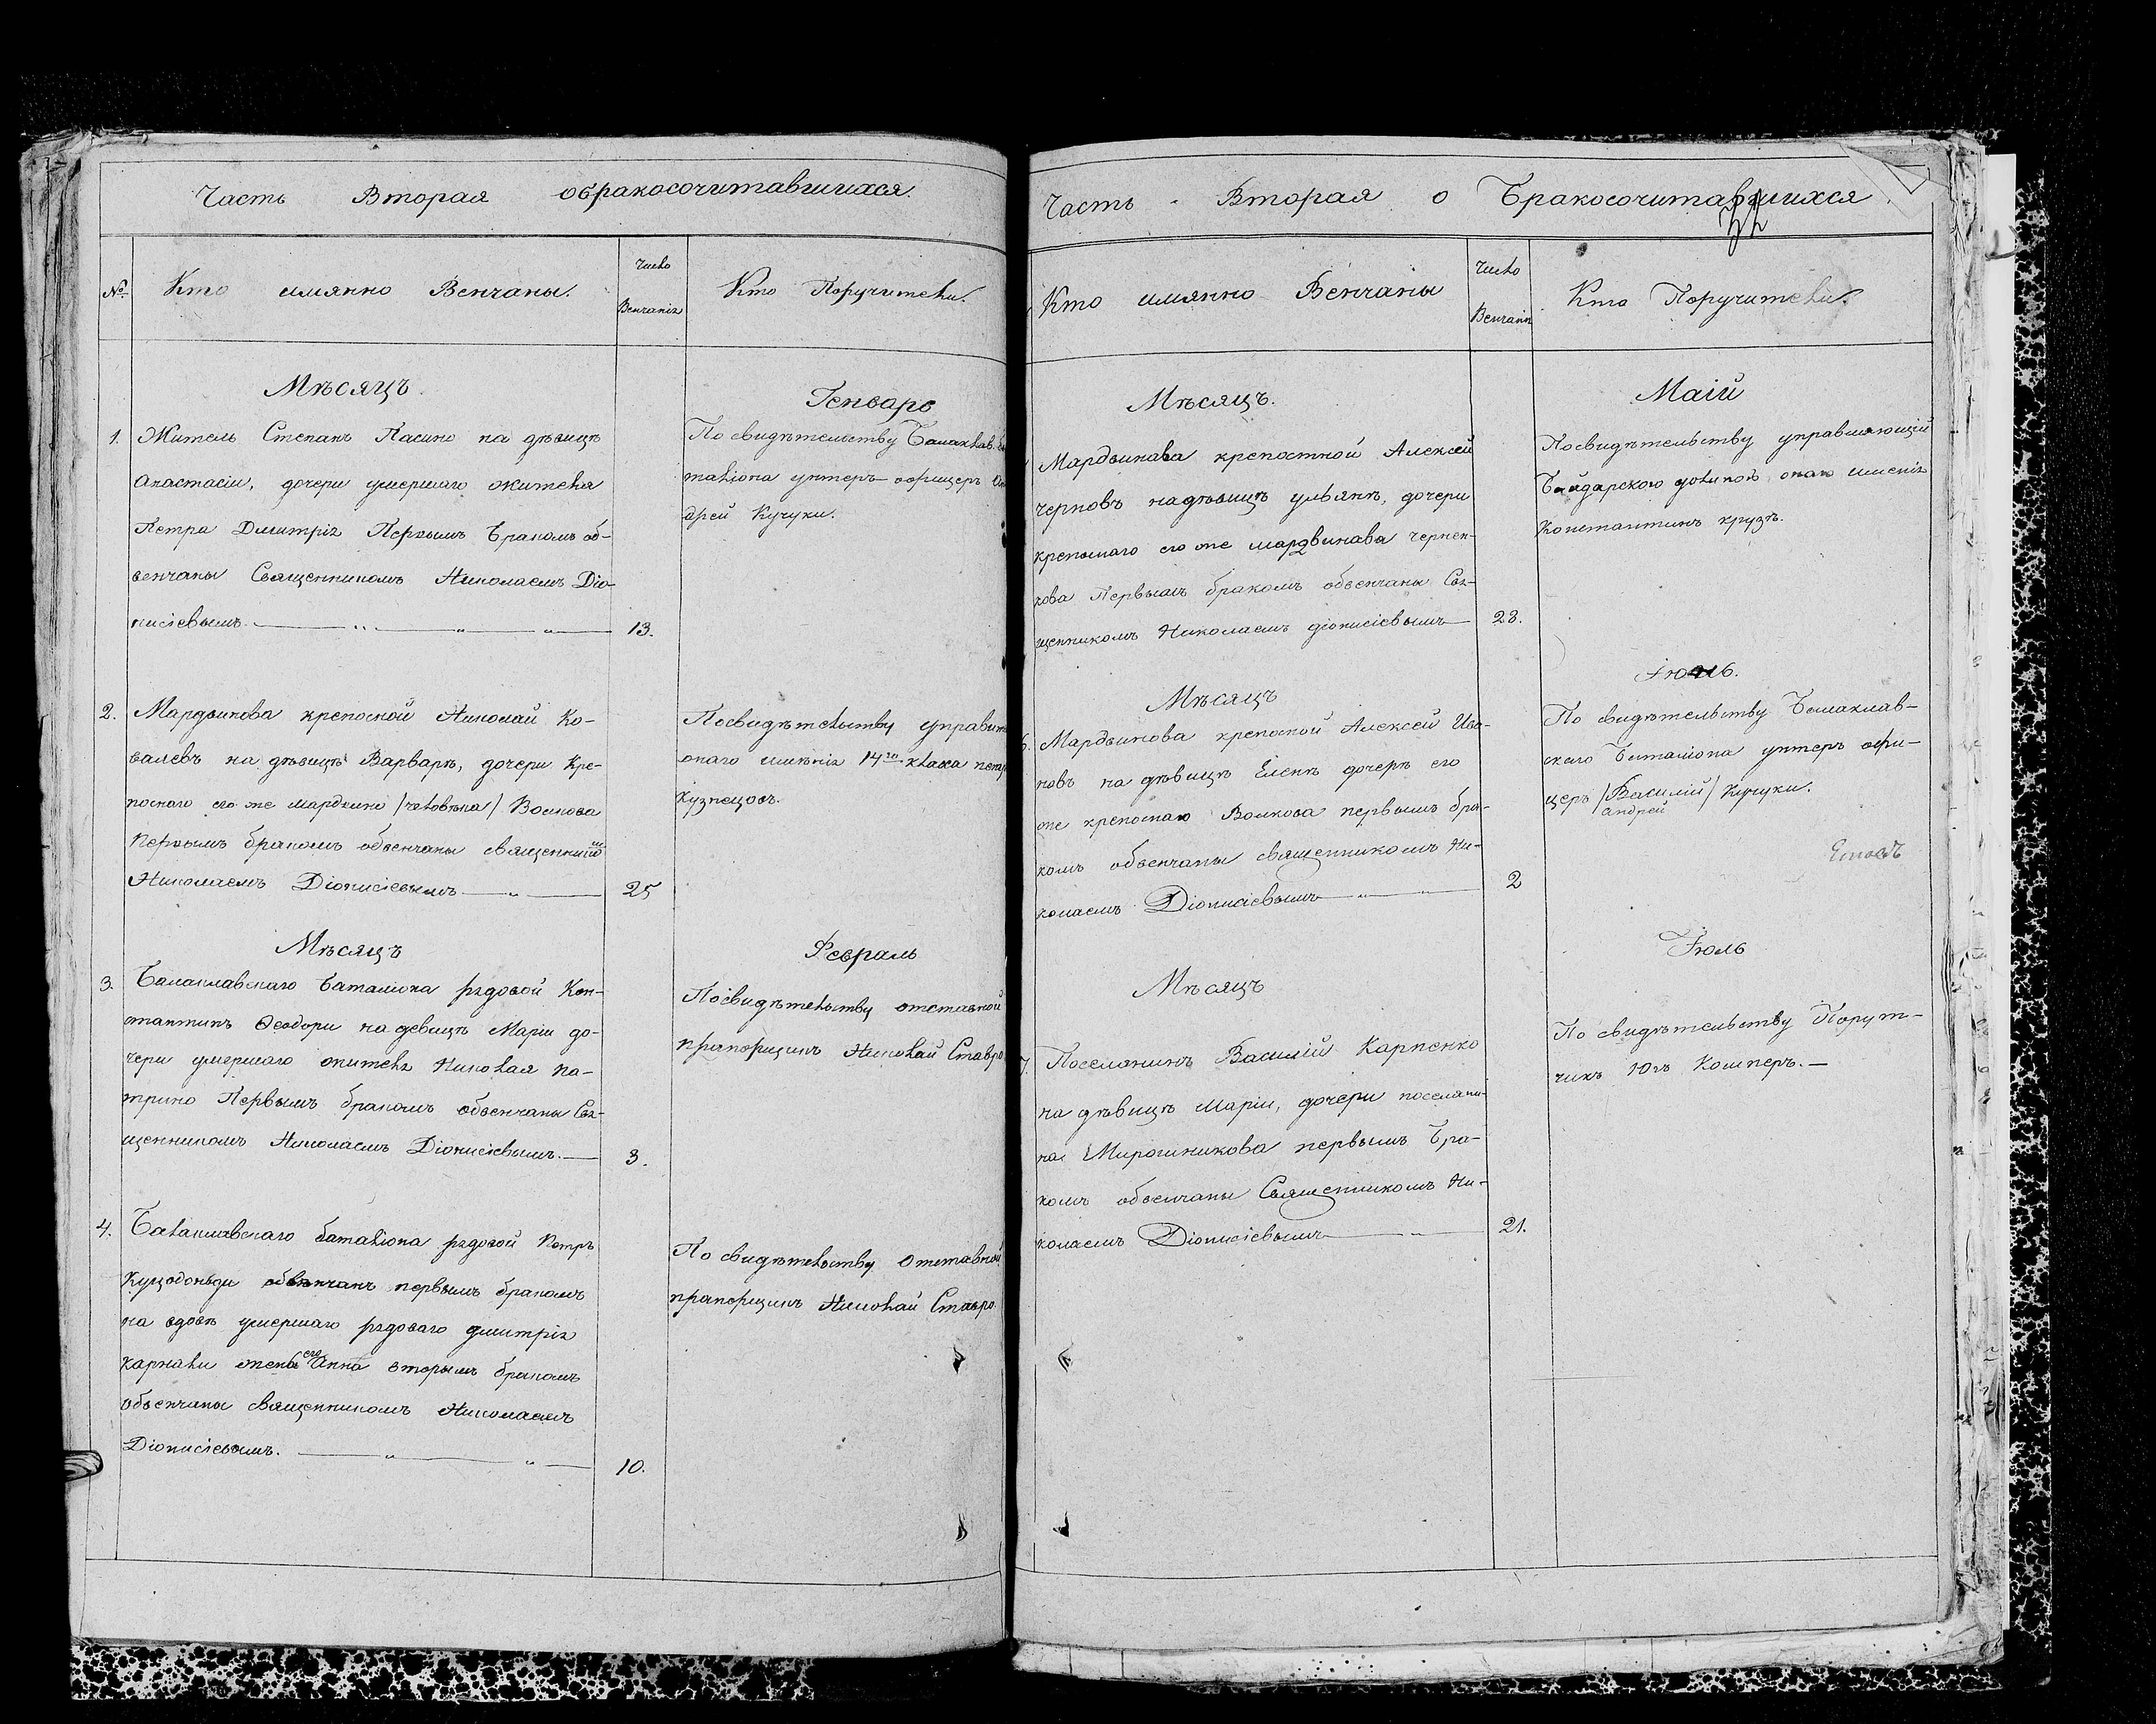 Часть Вторая обракосочитавшихся.
№
Кто имянно Венчаны.
Число
Венчанія
Кто Поручители.
Мѣсяцъ.
Генварь
1. Житель Степанъ Пасино на дѣвицѣ
Анастасіи, дочери умершаго жителя
Петра Дмитрія Первымъ бракомъ об-
венчаны Священникомъ Николаемъ Діо-
нисіевымъ. 13.
По свидѣтельству Балаклав.
таліона унтеръ-офицеръ Ан
дрей Кучуки.
2. Мардвинова крепосной Николай Ко-
валевъ на дѣвицѣ Варварѣ, дочери Кре-
поснаго его же мардвино /человѣка/ Волкова
Первымъ бракомъ обвенчаны священни
Николаемъ Діонисіевымъ 25
Посвидѣтельству управит
онаго имѣнія 14го класа петр
Кузнецовъ.
Мѣсяцъ
Февраль
3. Балаклавскаго Баталіона рядовой Кон-
стантинъ Ѳеодори на девицѣ Маріи до-
чери умершаго жителя Николая па-
трино Первымъ бракомъ обвенчаны Свя-
щенникомъ Николаемъ Діонисіевымъ. 3.
Посвидѣтельству отставной
прапорщикъ Николай Ставро
4. Балаклавскаго баталіона рядовой Петръ
Куцодоньди обвѣнчанъ первымъ бракомъ
на вдовѣ умершаго рядоваго дмитрія
карнали жена его Анна вторымъ бракомъ
обвенчаны священникомъ Николаемъ
Діонисіевымъ. 10.
По свидѣтельству Отставной
прапорщикъ Николай Ставро.
Часть Вторая о Бракосочитавшихся.
Кто имянно Венчаны
Число
Венчанія
Кто Поручители.
Мѣсяцъ.
Маій
Мардвинава крепостной Алексей
черновъ надѣвицѣ ульянѣ, дочери
крепьснаго его же мардвинава чернен-
кова Первымъ бракомъ обвенчаны Свя-
щенникомъ Николаемъ діонисіевымъ 28.
Посвидѣтельству управляющій
Байдарскою долиною онаго имѣнія
Константинъ крузъ.
Мѣсяцъ
Іюнь.
6. Мардвинова крепосной Алексей Ива-
новъ на дѣвицѣ Еленѣ дочерѣ его
же крепоснаго Волкова первымъ бра-
комъ обвенчаны священникомъ Ни-
колаемъ Діонисіевымъ 2
По свидѣтельству Балаклав-
скаго Баталіона унтеръ офи-
церъ /Василій/ Кучуки.
андрей
Мѣсяцъ
Іюль
7. Поселянинъ Василій Карпенко
на дѣвицѣ Маріи, дочери поселяни-
на Мирошникова первымъ Бра-
комъ обвенчаны Священникомъ Ни-
колаемъ Діонисіевымъ 21.
По свидѣтельству Порут-
чикъ Югъ Комперъ.